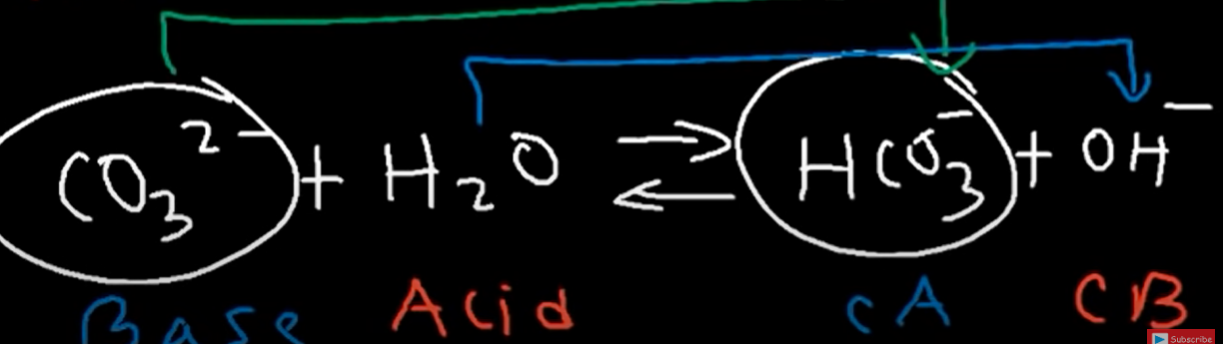 CO₃²⁻ + H₂O ⇌ HCO₃⁻ + OH⁻
Base Acid CA CB
Subscribe